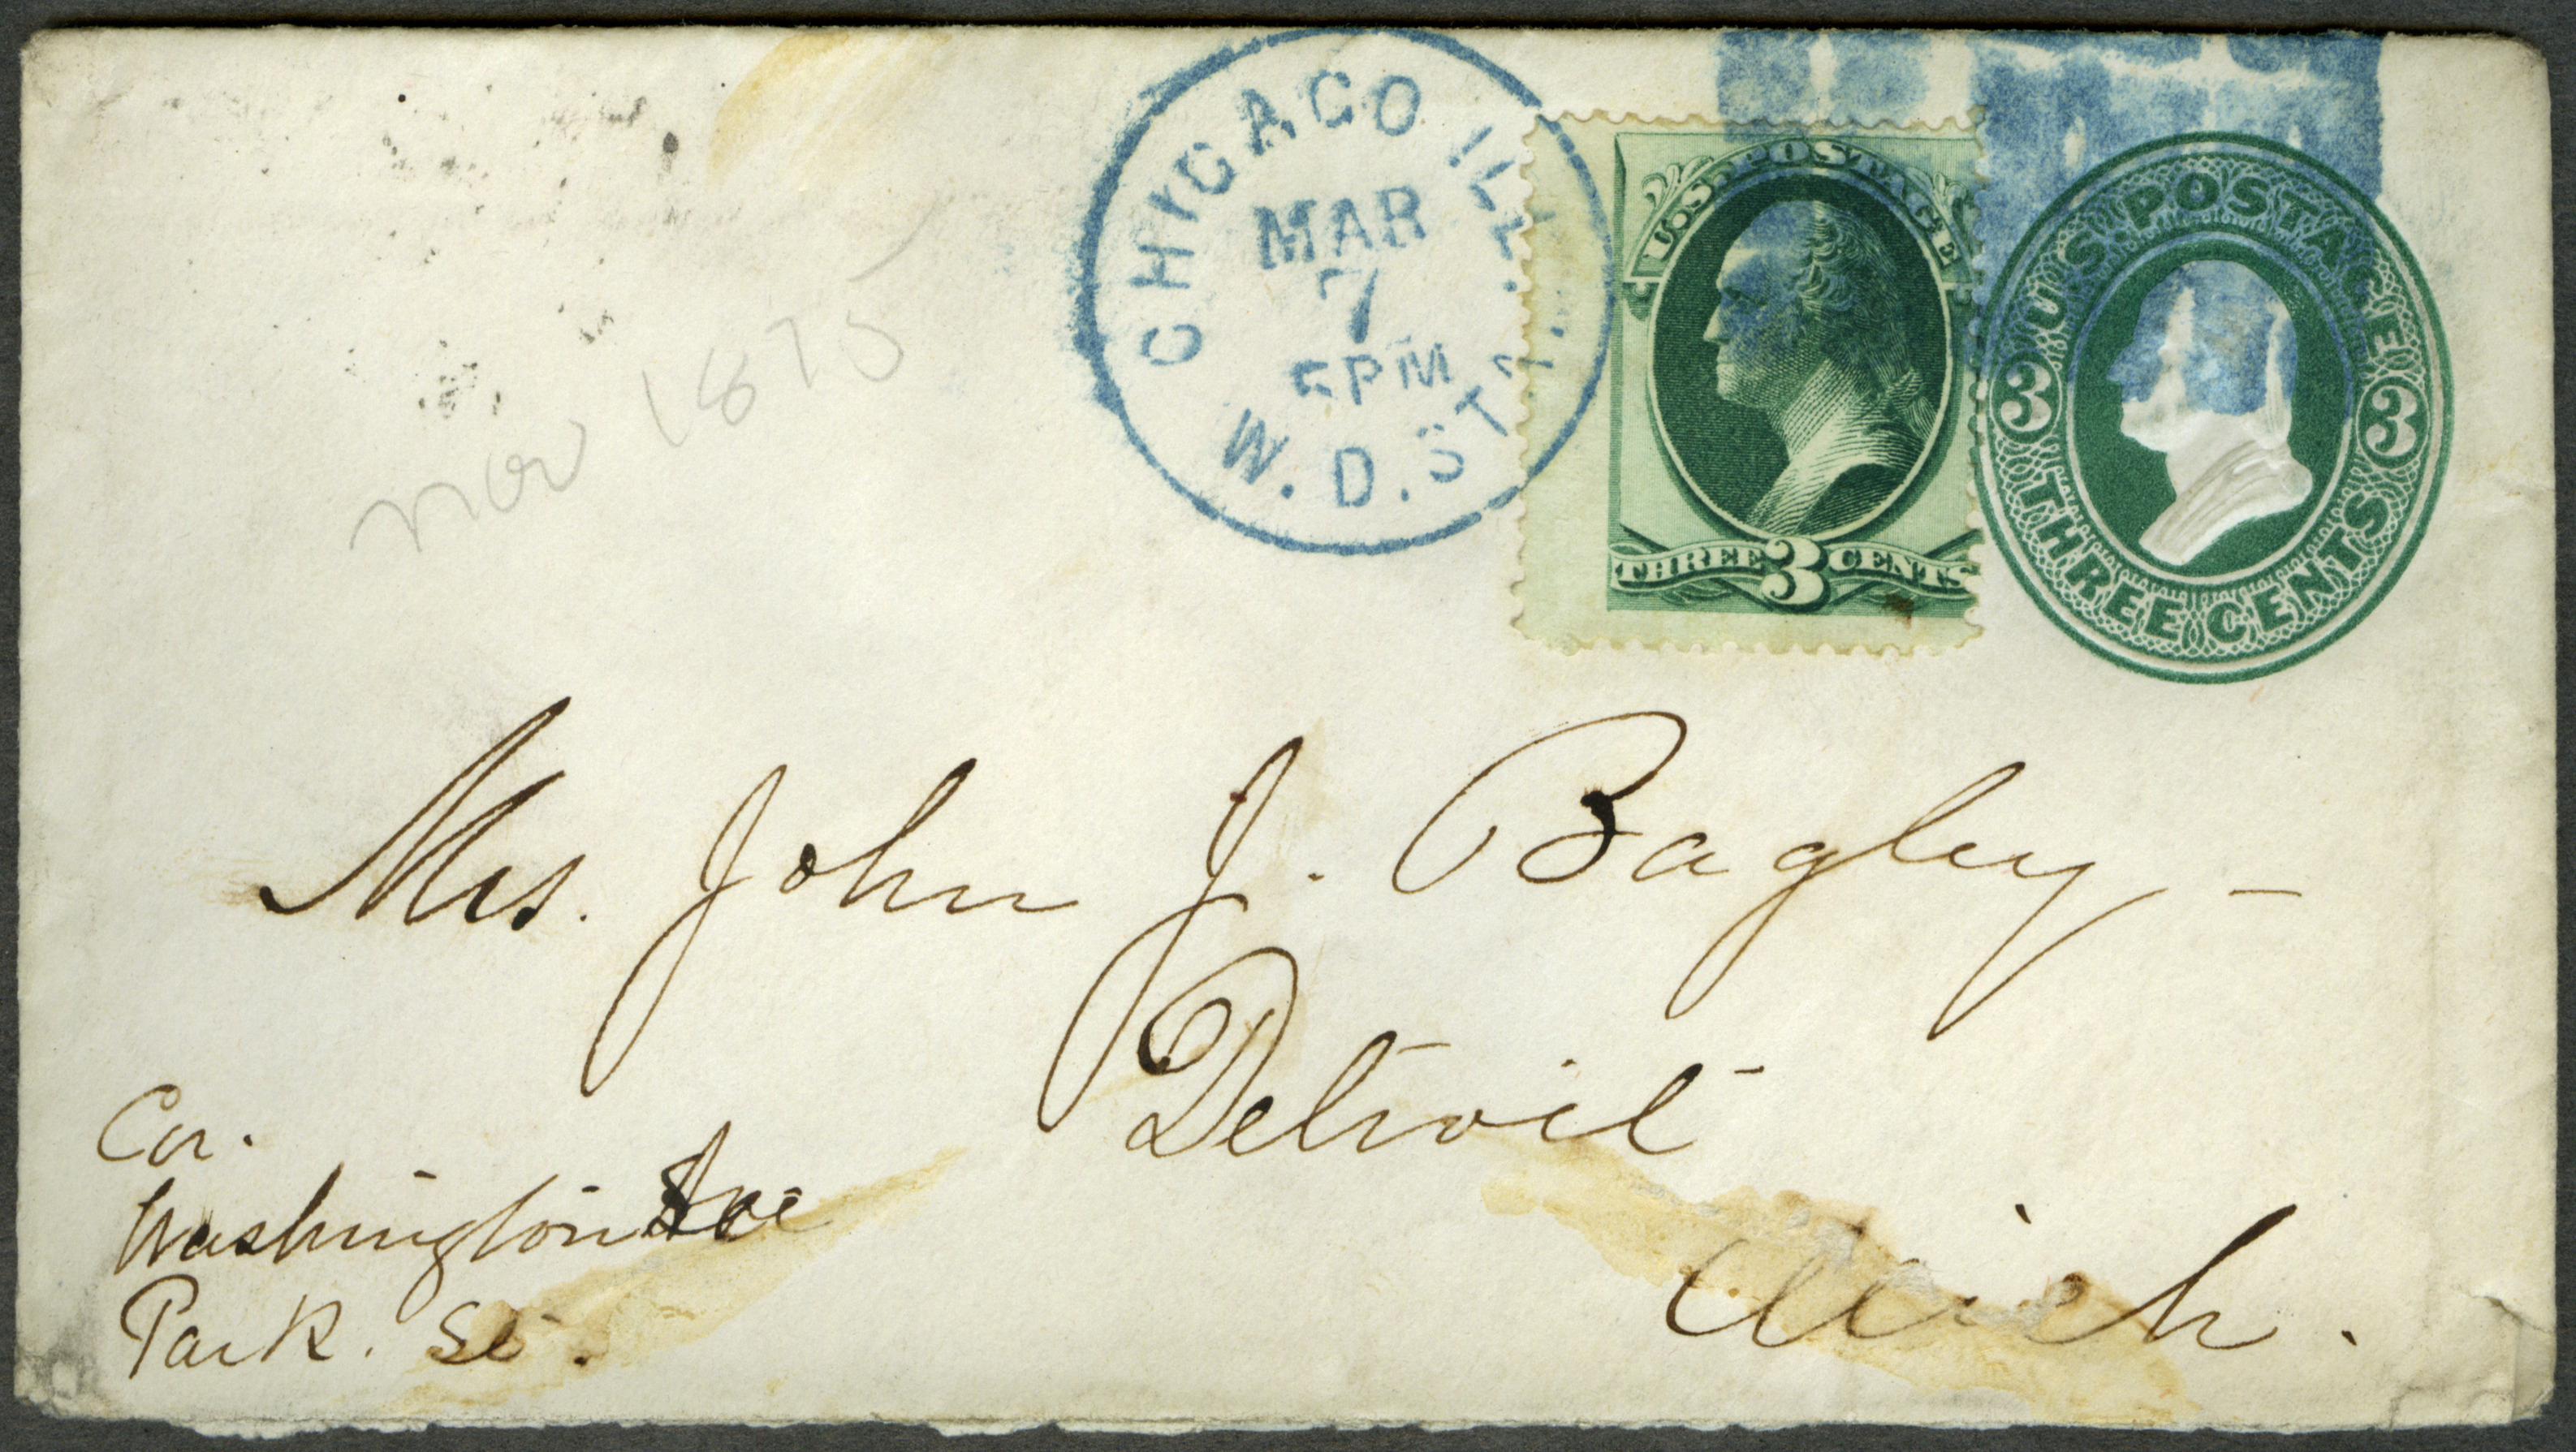 CHICAGO ILL.
MAR
7
5PM
W. D. STA.
U.S. POSTAGE
THREE 3 CENTS
U.S. POSTAGE
3 3
THREE CENTS
1875
Mrs. John J. Bagley -
Detroit
Mich.
Cor.
Washington Ave
Park. St.